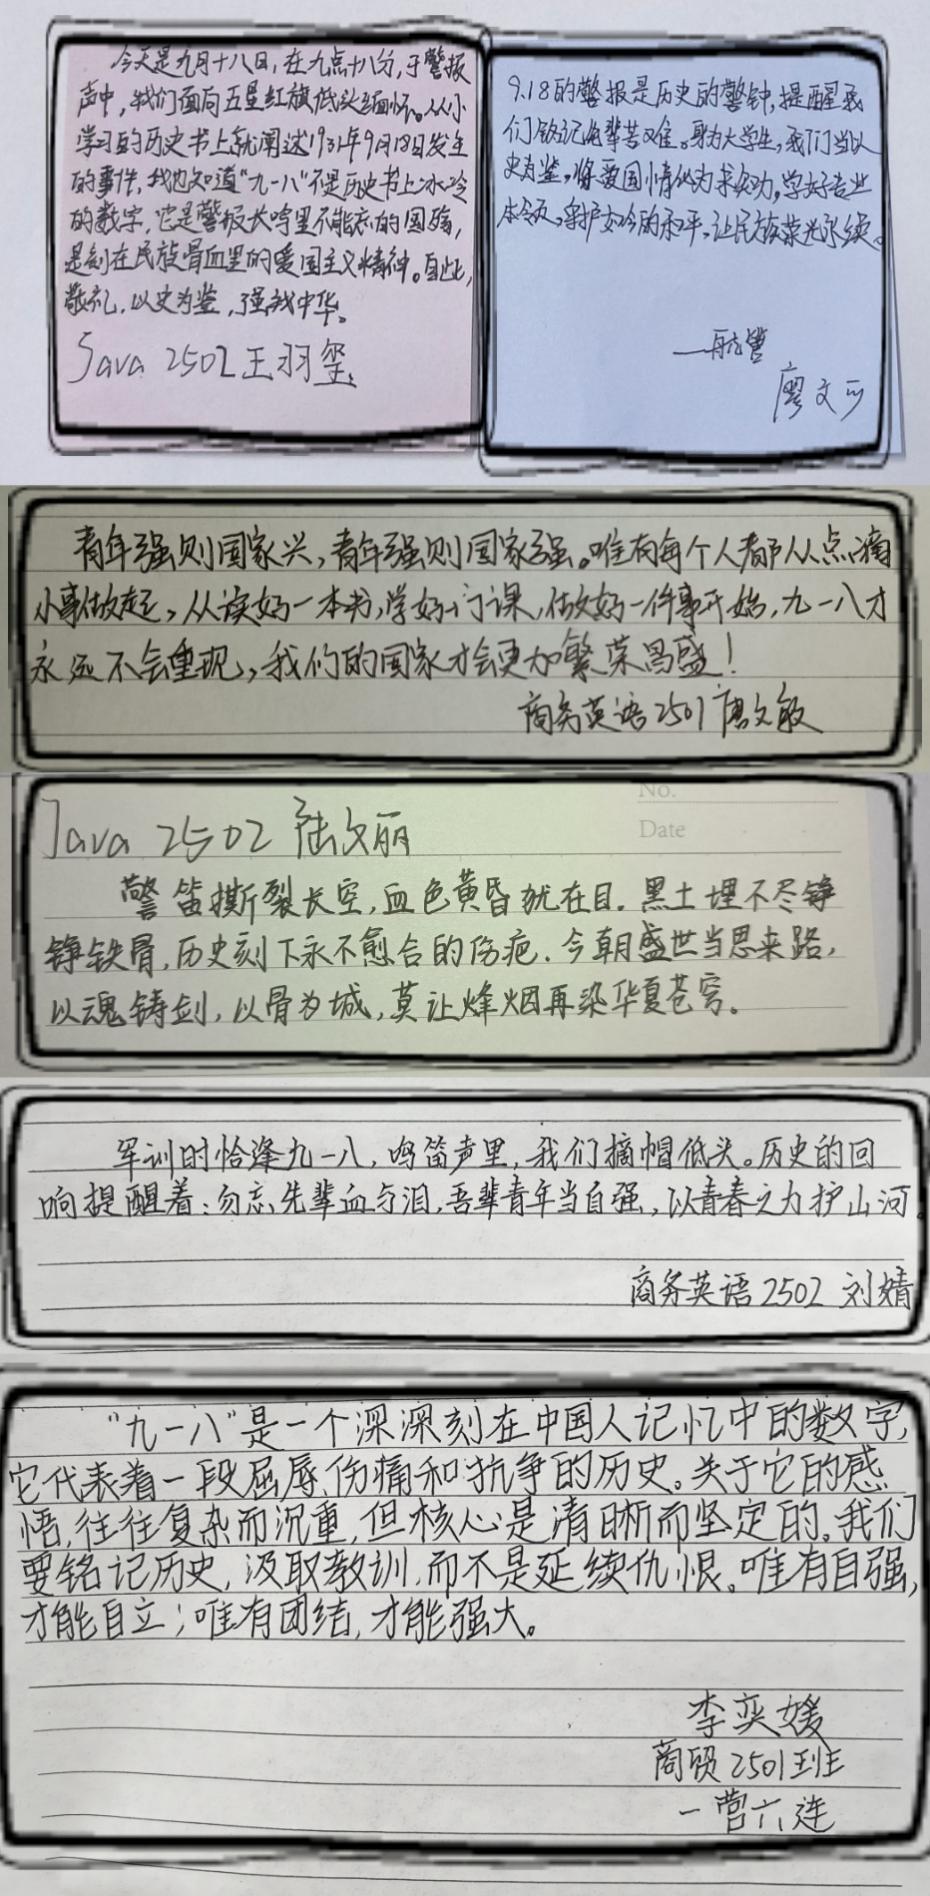 今天是九月十八日,在九点十八分,于警报
声中,我们面向五星红旗低头缅怀。从小
学习的历史书上就阐述1931年9月18日发生
的事件,我也知道"九一八"不是历史书上冰冷
的数字,它是警报长鸣里不能忘的国殇,
是刻在民族骨血里的爱国主义精神。自此,
敬礼,以史为鉴,强我中华。
Java 2502 王羽玺
9.18的警报是历史的警钟,提醒我
们铭记先辈苦难。身为大学生,我们当以
史为鉴,将爱国情化为求实功,学好专业
本领,守护如今的和平,让民族荣光永续。
——航管
廖文可
青年强则国家兴,青年强则国家强。唯有每个人都从点滴
小事做起,从读好一本书,学好一门课,做好一件事开始,九一八才
永远不会重现,我们的国家才会更加繁荣昌盛!
商务英语2501 唐文敏
No.
Date
Java 2502 陆文丽
警笛撕裂长空,血色黄昏犹在目.黑土埋不尽铮
铮铁骨,历史刻下永不愈合的伤疤.今朝盛世当思来路,
以魂铸剑,以骨为城,莫让烽烟再染华夏苍穹。
军训时恰逢九一八,鸣笛声里,我们摘帽低头。历史的回
响提醒着:勿忘先辈血与泪,吾辈青年当自强,以青春之力护山河。
商务英语2502 刘婧
"九一八"是一个深深刻在中国人记忆中的数字,
它代表着一段屈辱、伤痛和抗争的历史。关于它的感
悟,往往复杂而沉重,但核心是清晰而坚定的。我们
要铭记历史,汲取教训,而不是延续仇恨。唯有自强,
才能自立;唯有团结,才能强大。
李奕媛
商贸2501班
一营六连